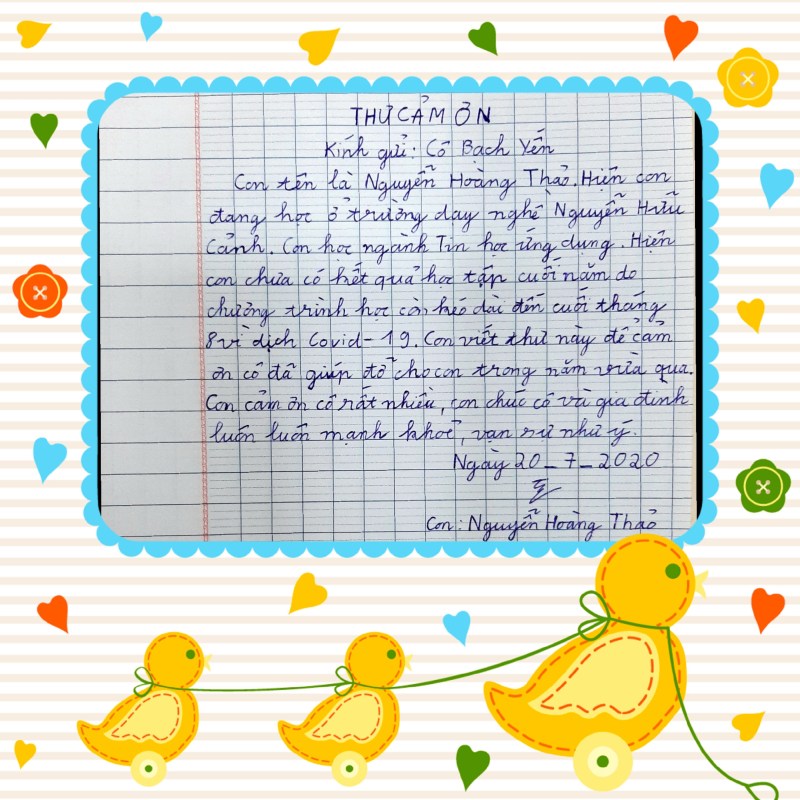 THƯ CẢM ƠN
Kính gửi: Cô Bạch Yến
Con tên là Nguyễn Hoàng Thảo. Hiện con
đang học ở trường dạy nghề Nguyễn Hữu
Cảnh. Con học ngành Tin học ứng dụng. Hiện
con chưa có kết quả học tập cuối năm do
chương trình học còn kéo dài đến cuối tháng
8 vì dịch Covid-19. Con viết thư này để cảm
ơn cô đã giúp đỡ cho con trong năm vừa qua.
Con cảm ơn cô rất nhiều, con chúc cô và gia đình
luôn luôn mạnh khoẻ, vạn sự như ý.
Ngày 20_7_2020
Con: Nguyễn Hoàng Thảo